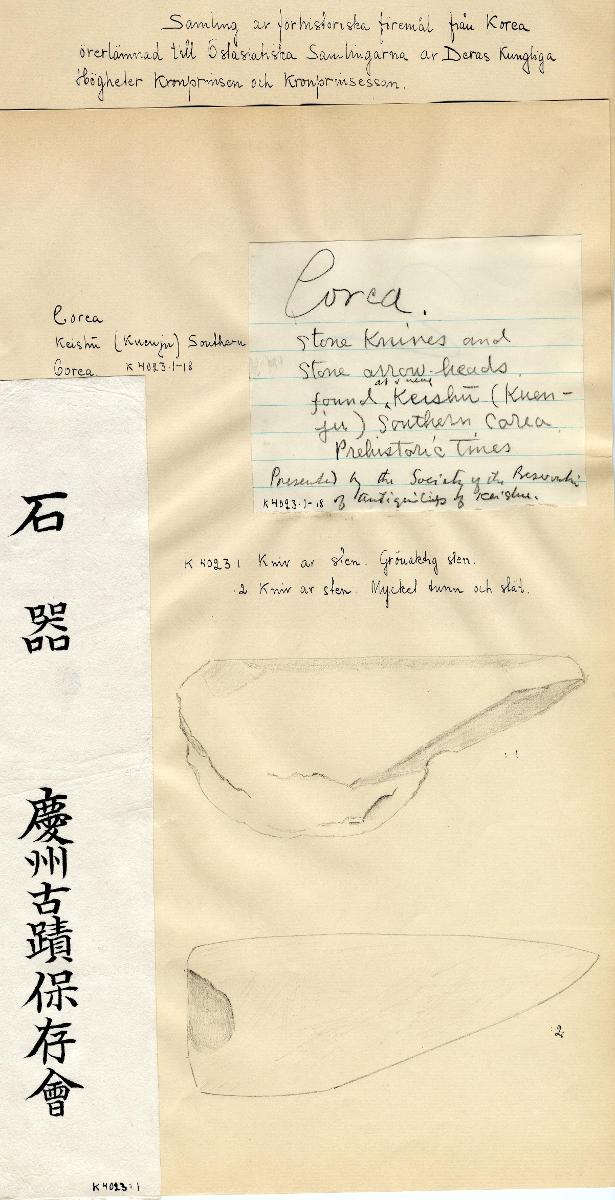 Samling av förhistoriska föremål från Korea
överlämnad till Östasiatiska Samlingarna av Deras Kungliga
Högheter Kronprinsen och Kronprinsessan.
Corea
Keishū (Kuenju) Southern
Corea. K 4023:1-18
Corea.
Stone Knives and
Stone arrow-heads
found at & near Keishū (Kuen-
ju) Southern Corea
Prehistoric Times
Presented by the Society of the Preservation
of antiquities of Keishu.
K 4023:1-18
石器
慶州古蹟保存會
K 4023:1
K 4023:1 Kniv av sten. Grönaktig sten.
:2 Kniv av sten. Mycket tunn och slät.
:1
2